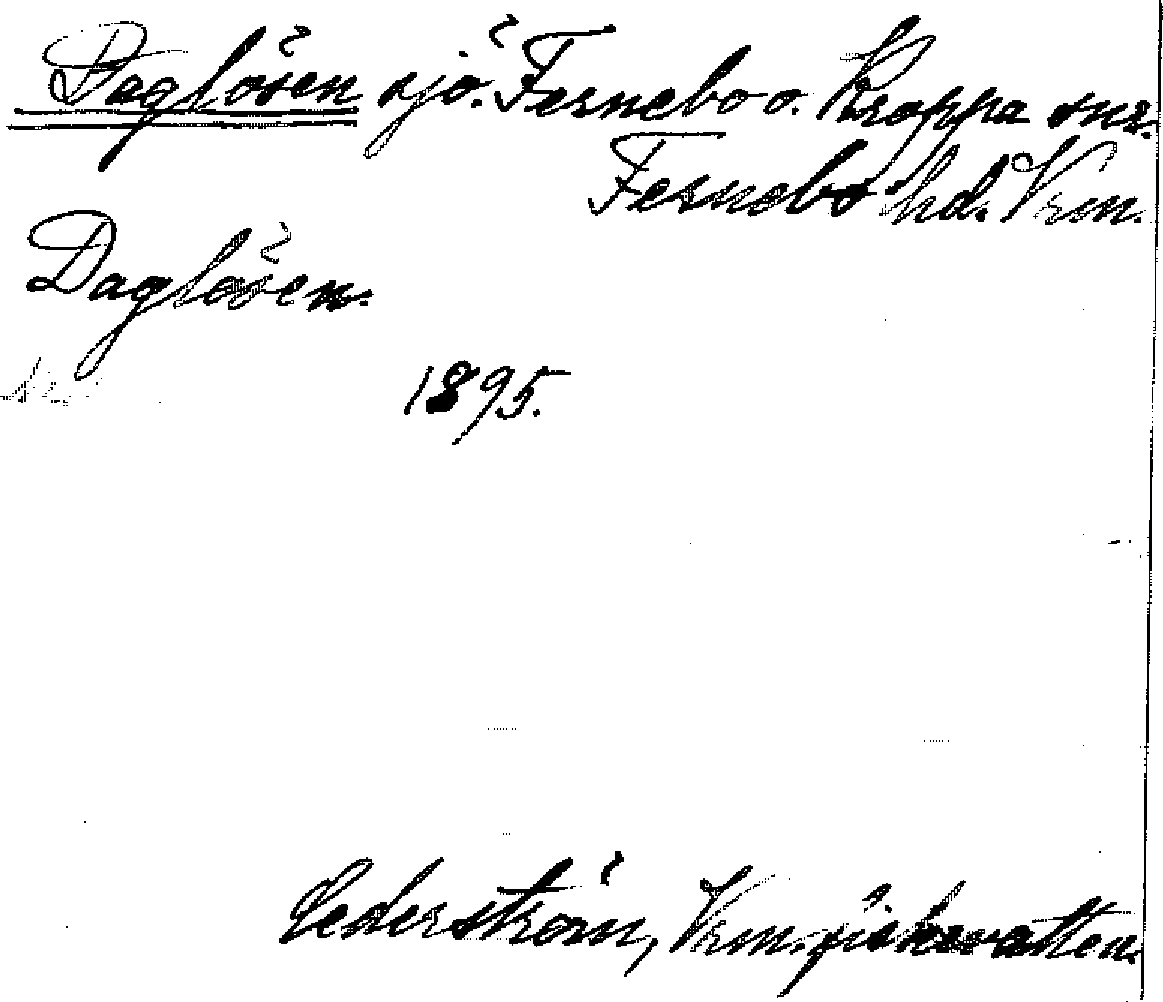 Daglösen sjö. Fernebo o. Kroppa snr.
Fernebo hd. Vrm.
Daglösen.
1895.
Cederström, Vrm. fiskevatten.